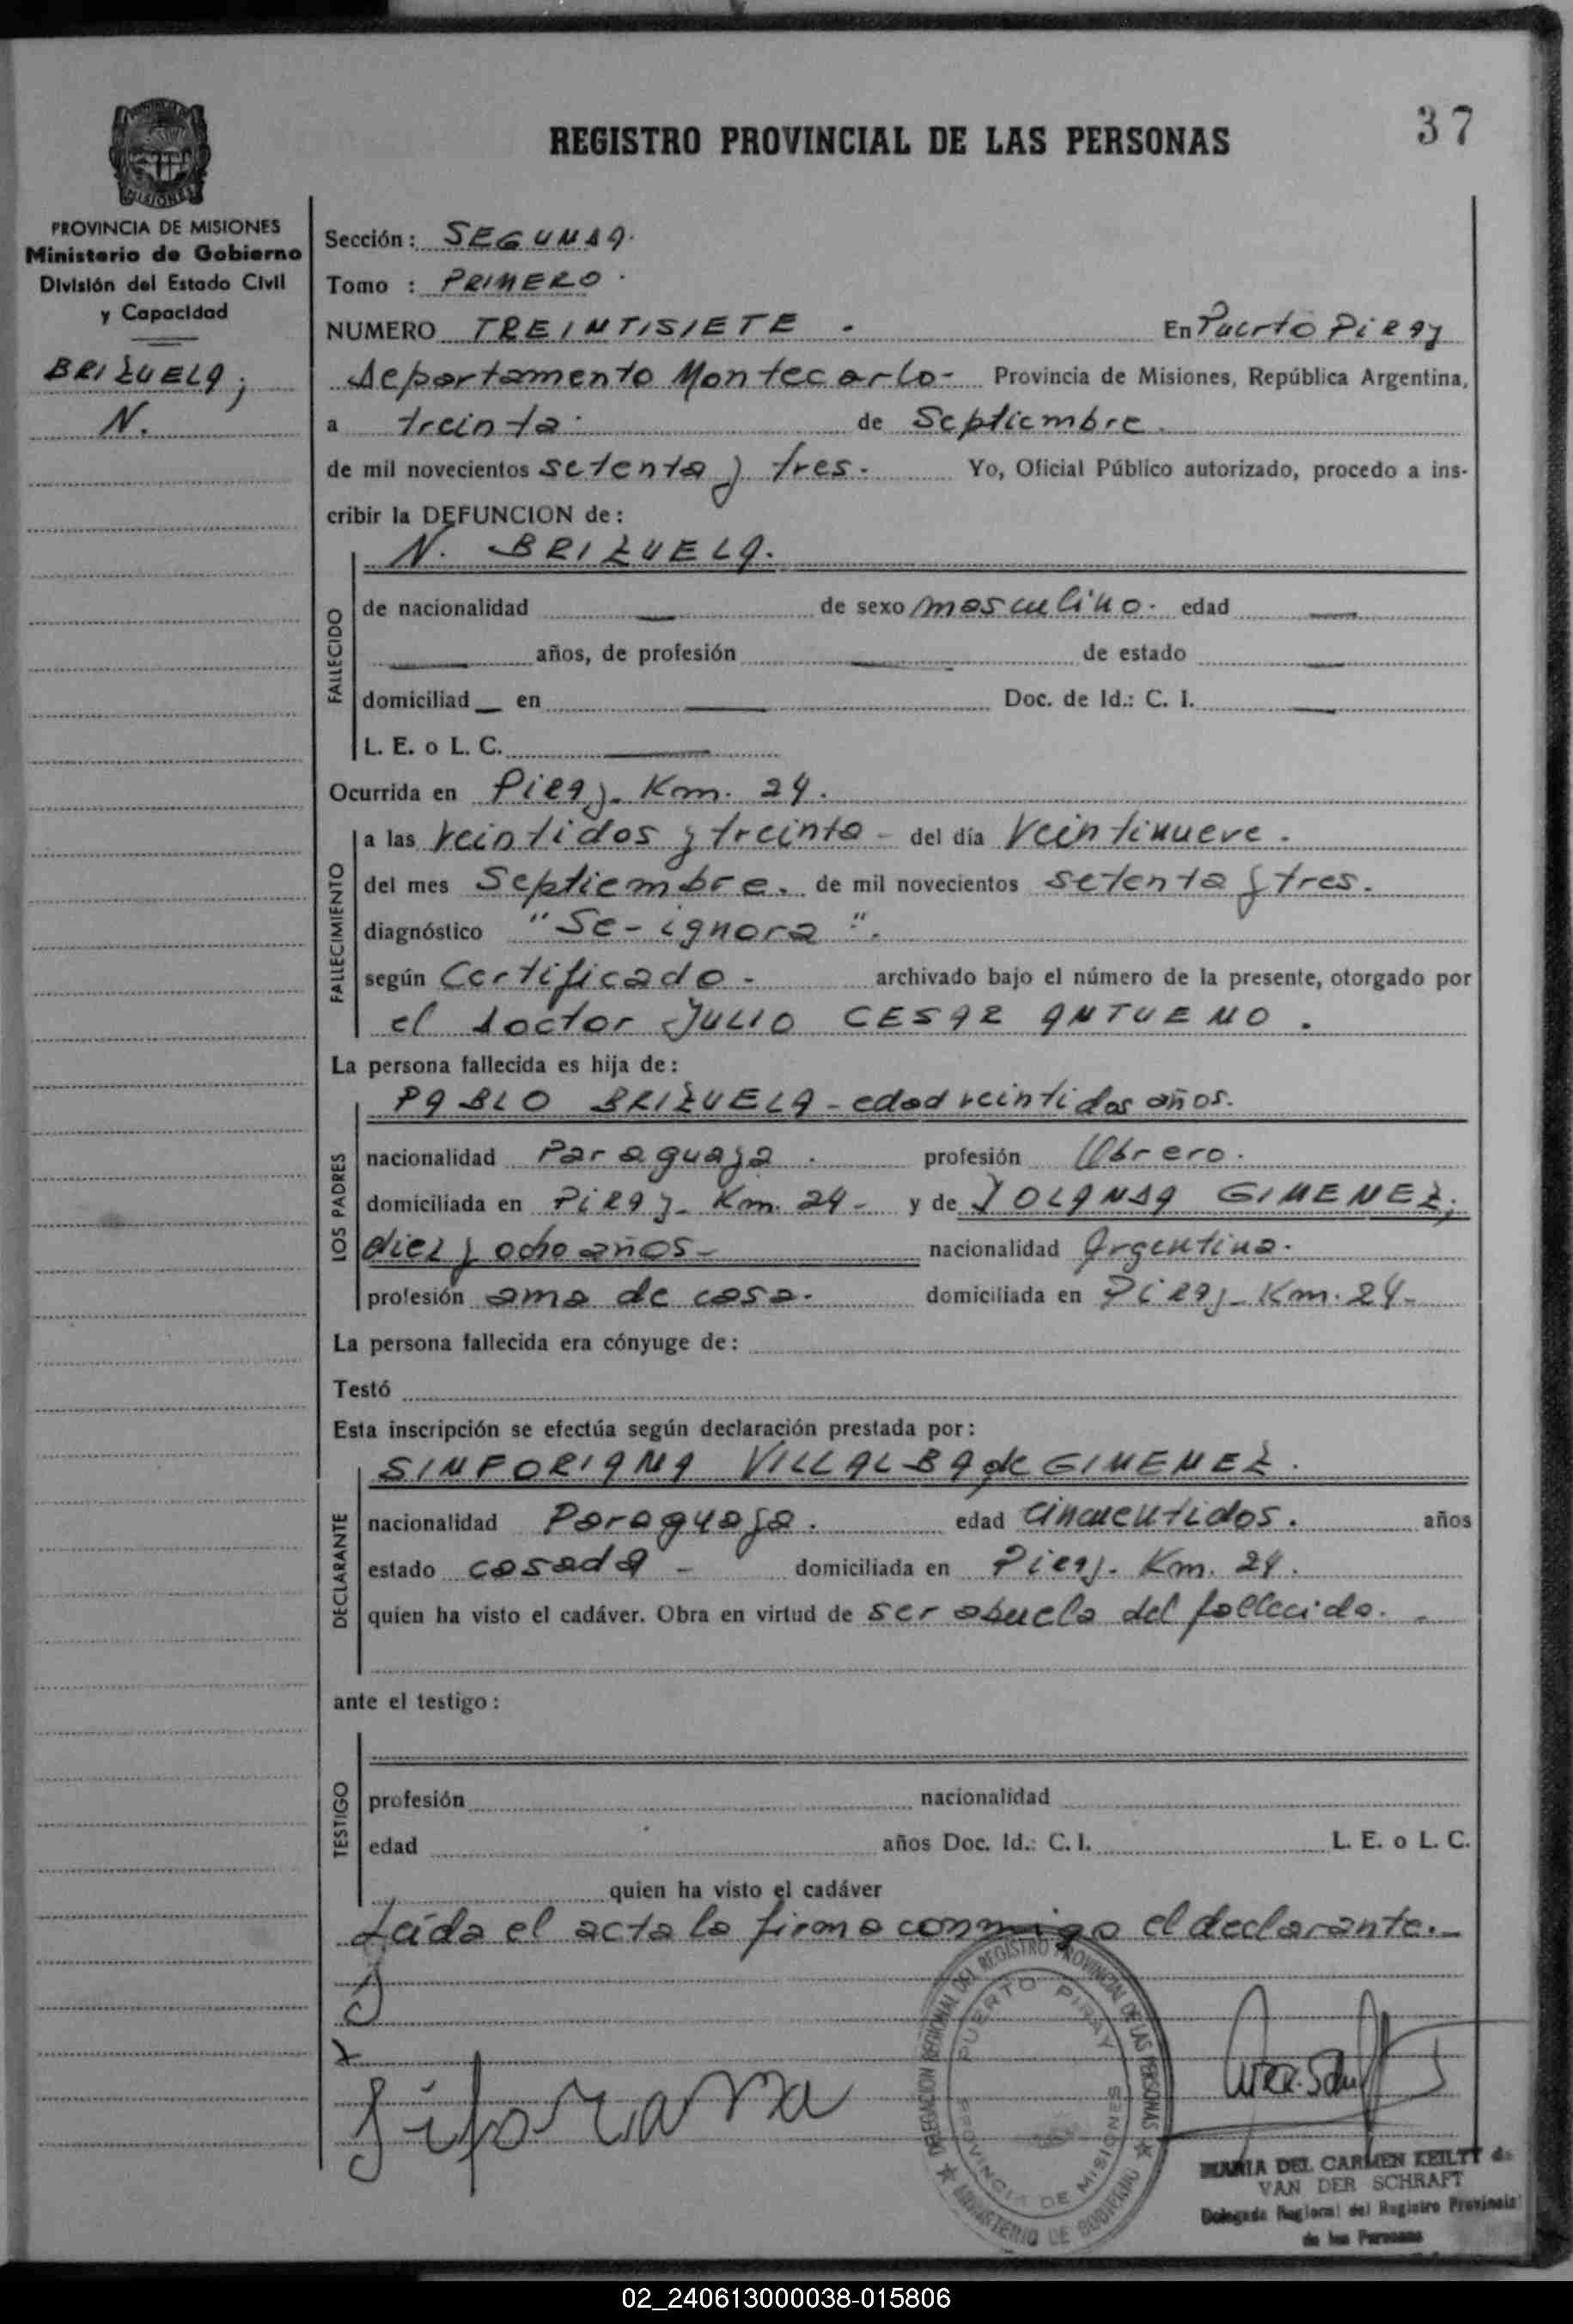 37
REGISTRO PROVINCIAL DE LAS PERSONAS
MISIONES
PROVINCIA DE MISIONES
Ministerio de Gobierno
División del Estado Civil
y Capacidad
BRIZUELA;
N.
Sección: SEGUNDA.
Tomo : PRIMERO.
NUMERO TREINTISIETE . En Puerto Piray
departamento Montecarlo- Provincia de Misiones, República Argentina,
a treinta. de Septiembre.
de mil novecientos setenta y tres. Yo, Oficial Público autorizado, procedo a ins-
cribir la DEFUNCION de:
N. BRIZUELA.
FALLECIDO
de nacionalidad — de sexo masculino. edad —
— años, de profesión — de estado —
domiciliad — en — Doc. de Id.: C. I. —
L. E. o L. C. —
Ocurrida en Piray. Km. 24.
FALLECIMIENTO
a las veintidos y treinta - del día veintinueve.
del mes Septiembre. de mil novecientos setenta y tres.
diagnóstico "Se-ignora".
según Certificado - archivado bajo el número de la presente, otorgado por
el doctor JULIO CESAR ANTUENO.
La persona fallecida es hija de:
LOS PADRES
PABLO BRIZUELA - edad veintidos años.
nacionalidad Paraguaya. profesión Obrero.
domiciliada en Piray. Km. 24- y de YOLANDA GIMENEZ;
diez y ocho años- nacionalidad Argentina.
profesión ama de casa. domiciliada en Piray- Km. 24-
La persona fallecida era cónyuge de:
Testó
Esta inscripción se efectúa según declaración prestada por:
DECLARANTE
SINFORIANA VILLALBA de GIMENEZ.
nacionalidad Paraguaya. edad cincuentidos. años
estado casada - domiciliada en Piray. Km. 24.
quien ha visto el cadáver. Obra en virtud de ser abuela del fallecido.
ante el testigo:
TESTIGO
profesión nacionalidad
edad años Doc. Id.: C. I. L. E. o L. C.
quien ha visto el cadáver
Leída el acta la firma conmigo el declarante.-
DELEGACION REGIONAL DEL REGISTRO PROVINCIAL DE LAS PERSONAS
PUERTO PIRAY
PROVINCIA DE MISIONES
MINISTERIO DE GOBIERNO
MARIA DEL CARMEN KEILTY de
VAN DER SCHRAFT
Delegada Regional del Registro Provincial
de las Personas
02_240613000038-015806